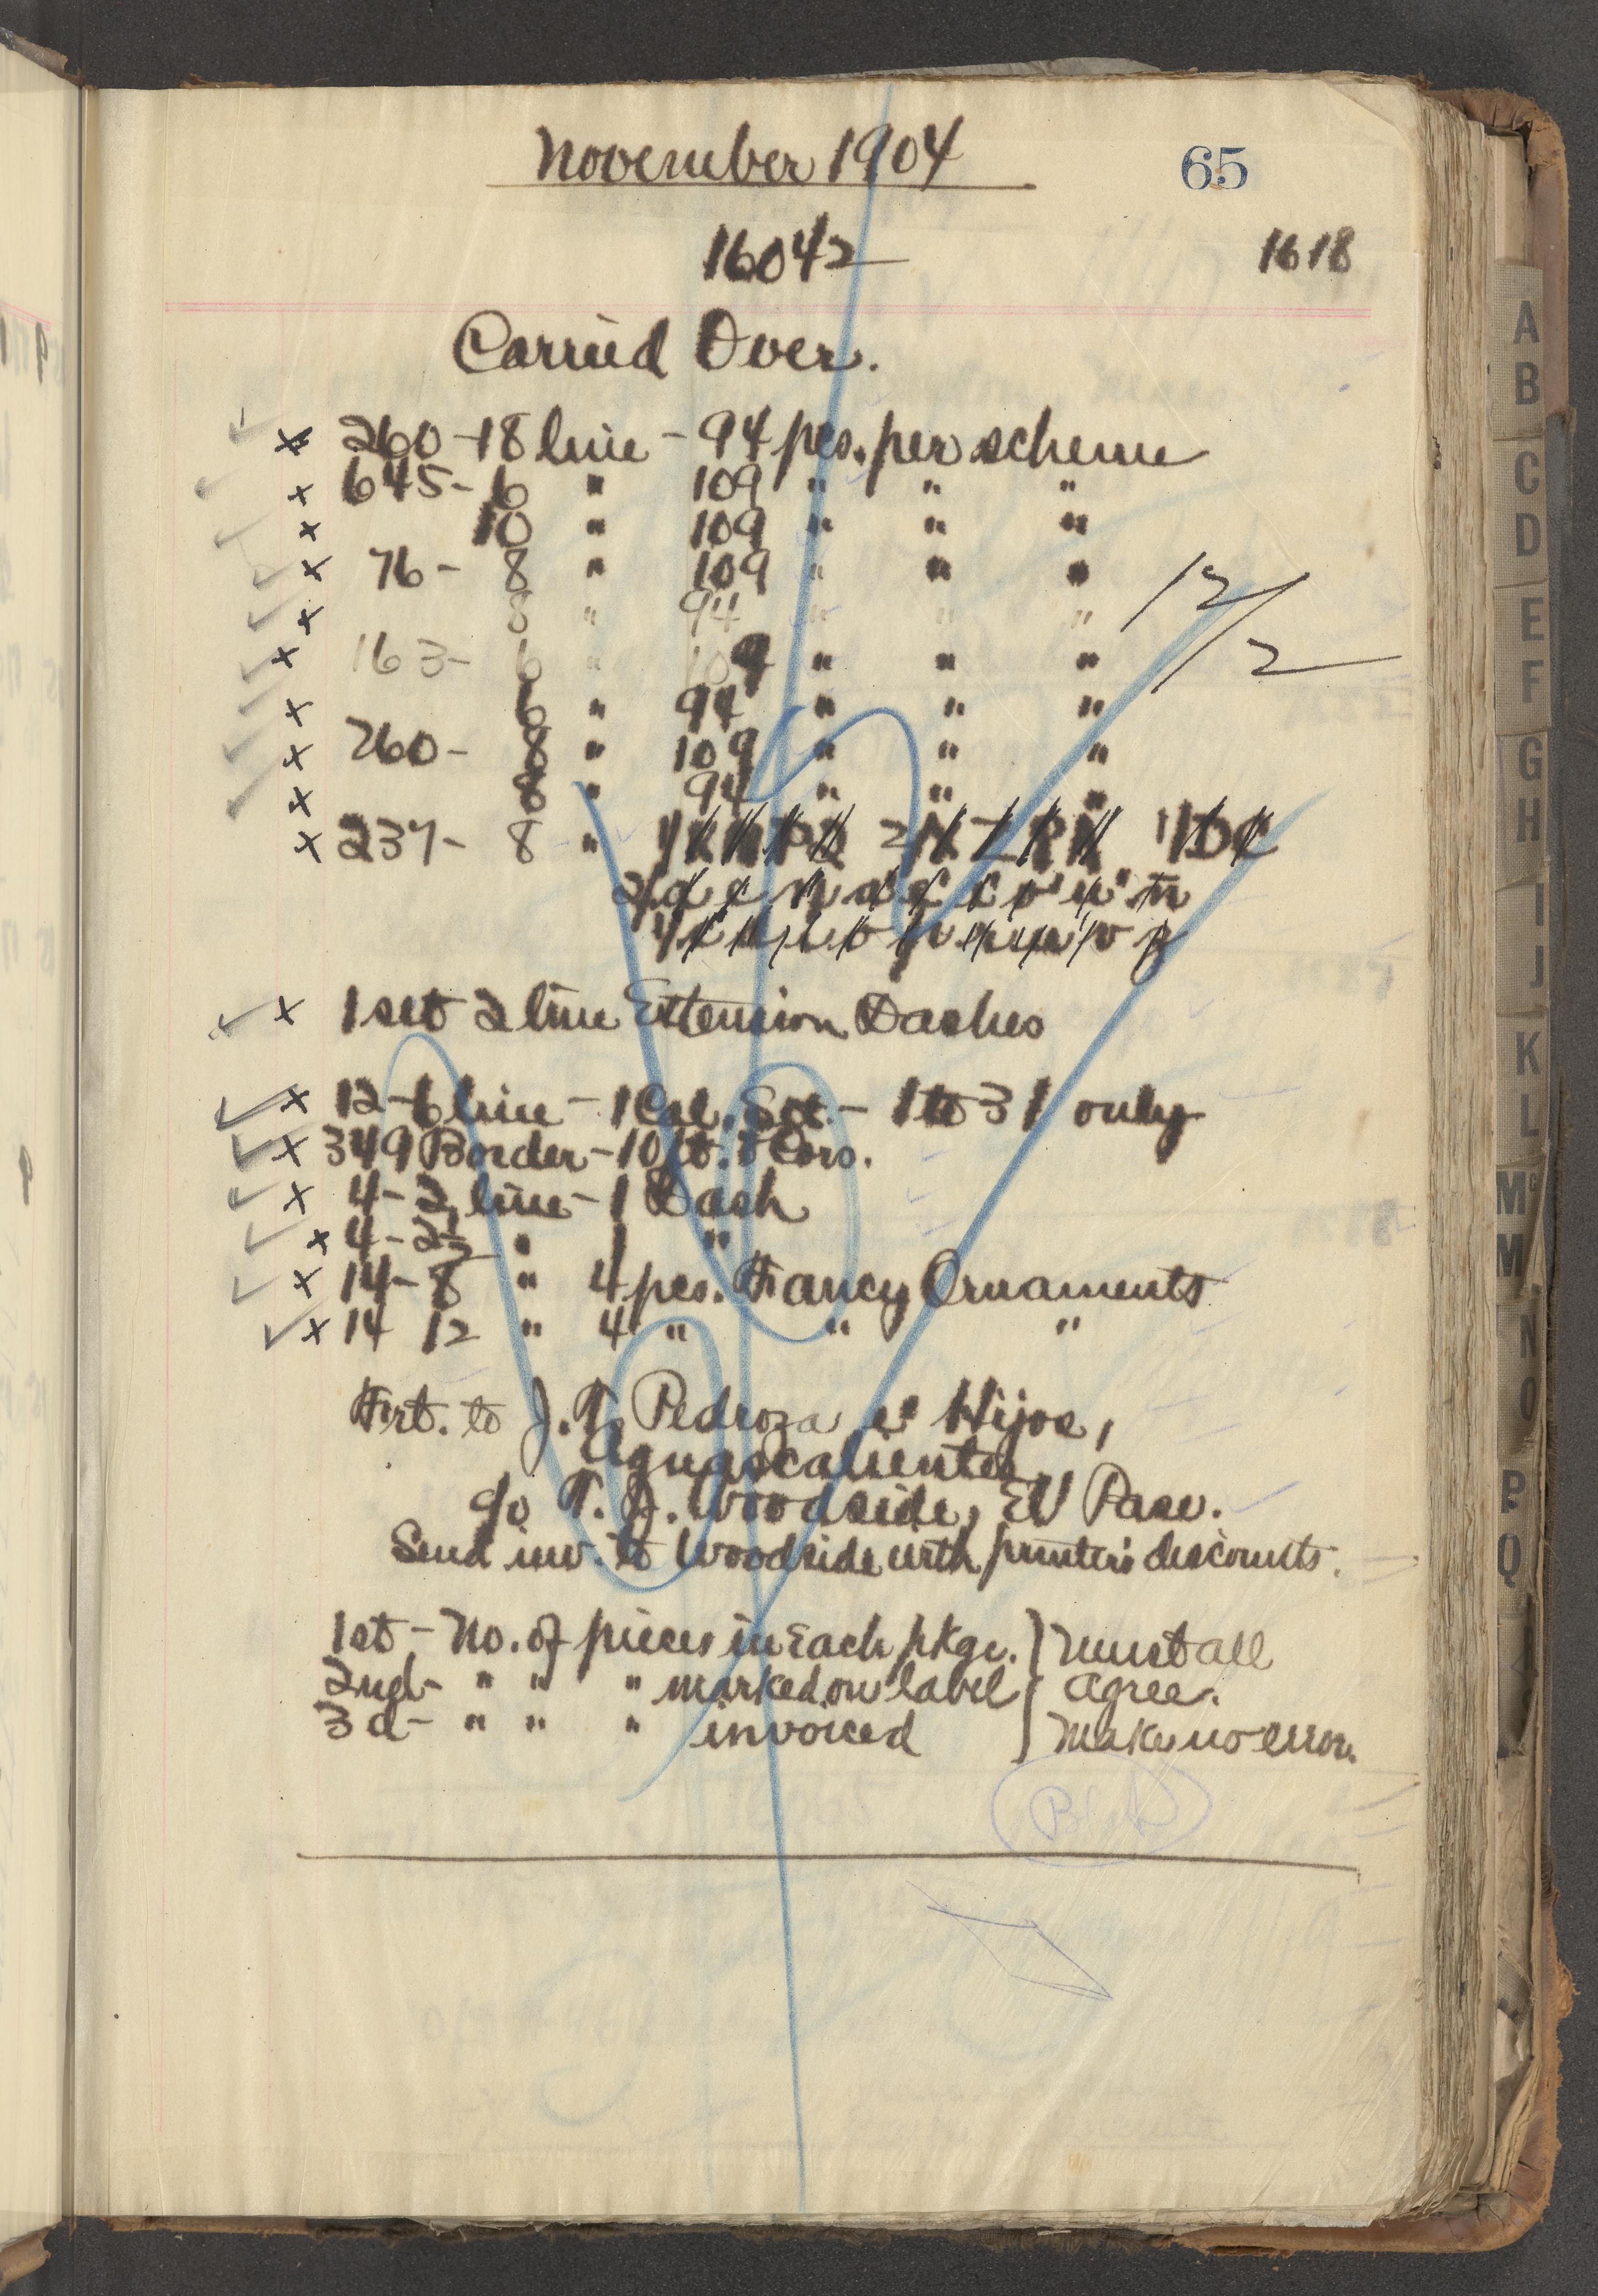 November 1904
65
16042
1618
Carried Over.
x 260 - 18 line - 94 pcs. per scheme
x 645 - 6 " 109 " " "
x 10 " 109 " " "
x 76 - 8 " 109 " " "
x 8 " 94 " " "
12/2
x 163 - 6 " 109 " " "
x 6 " 94 " " "
x 260 - 8 " 109 " " "
x 8 " 94 " " "
x 237 - 8 "
x 1 set 2 line Extension Dashes
x 12 - 6 line - 1 Cal. Set. - 1 to 31 only
x 349 Border - 10 ft. & Cors.
x 4 - 2 line - 1 Dash
x 4 - 2½ " 1 "
x 14 - 8 " 4 pcs. Fancy Ornaments
x 14 12 " 4 " " "
Frt. to J. T. Pedroza e Hijos,
Aguascalientes
c/o T. J. Woodside, El Paso.
Send inv. to Woodside with printer's discounts.
1st - No. of pieces in Each pkge. } must all
2nd - " " " marked on label } agree.
3d - " " " invoiced } Make no error.
A
B
C
D
E
F
G
H
I
J
K
L
Mc
M
N
O
P
Q